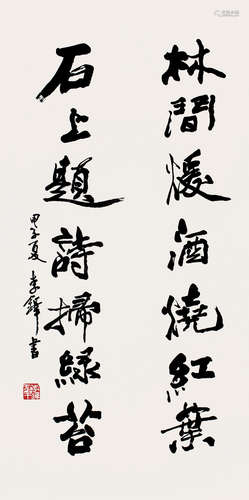 林間煖酒燒紅葉
石上題詩掃緑苔
甲子夏 李鐸書